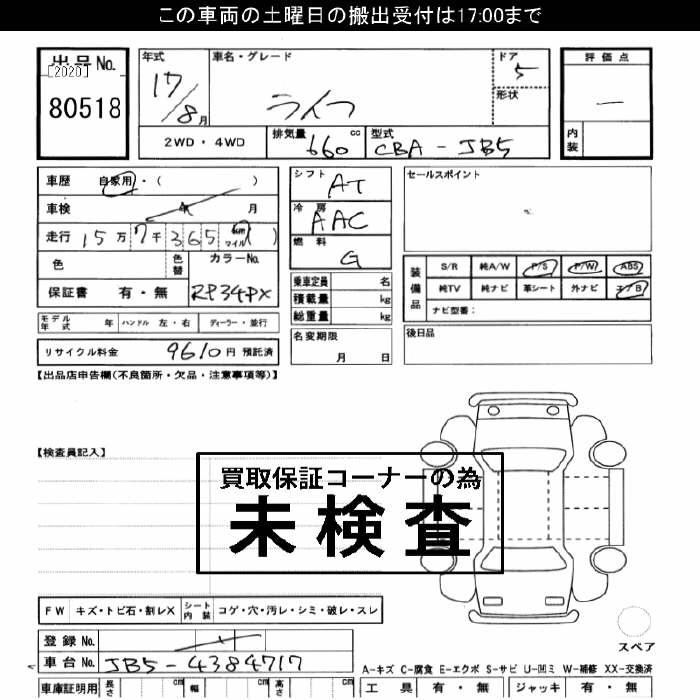 この車両の土曜日の搬出受付は17:00まで
出品No.
[2020]
80518
年式
17/8月
車名・グレード
ライフ
ドア
5
形状
評価点
―
内装
2WD・4WD
排気量
660 cc
型式
CBA-JB5
車歴 自家用・( )
車検 年 月
走行 15万7千365 km マイル ( )
色
色替
カラーNo.
RP34PX
保証書 有・無
シフト
AT
冷房
AAC
燃料
G
乗車定員 名
積載量 kg
総重量 kg
セールスポイント
装備品
S/R 純A/W P/S P/W ABS
純TV 純ナビ 革シート 外ナビ エアB
ナビ型番:
モデル年式 年 ハンドル 左・右 ディーラー・並行
名変期限
月 日
後日品
リサイクル料金 9610円 預託済
【出品店申告欄(不良箇所・欠品・注意事項等)】
【検査員記入】
買取保証コーナーの為
未検査
FW キズ・トビ石・割レX シート内装 コゲ・穴・汚レ・シミ・破レ・スレ
登録No.
車台No. JB5-4384717
スペア
A-キズ C-腐食 E-エクボ S-サビ U-凹ミ W-補修 XX-交換済
車庫証明用 長さ cm 幅 cm 高さ cm
工具 有・無 ジャッキ 有・無